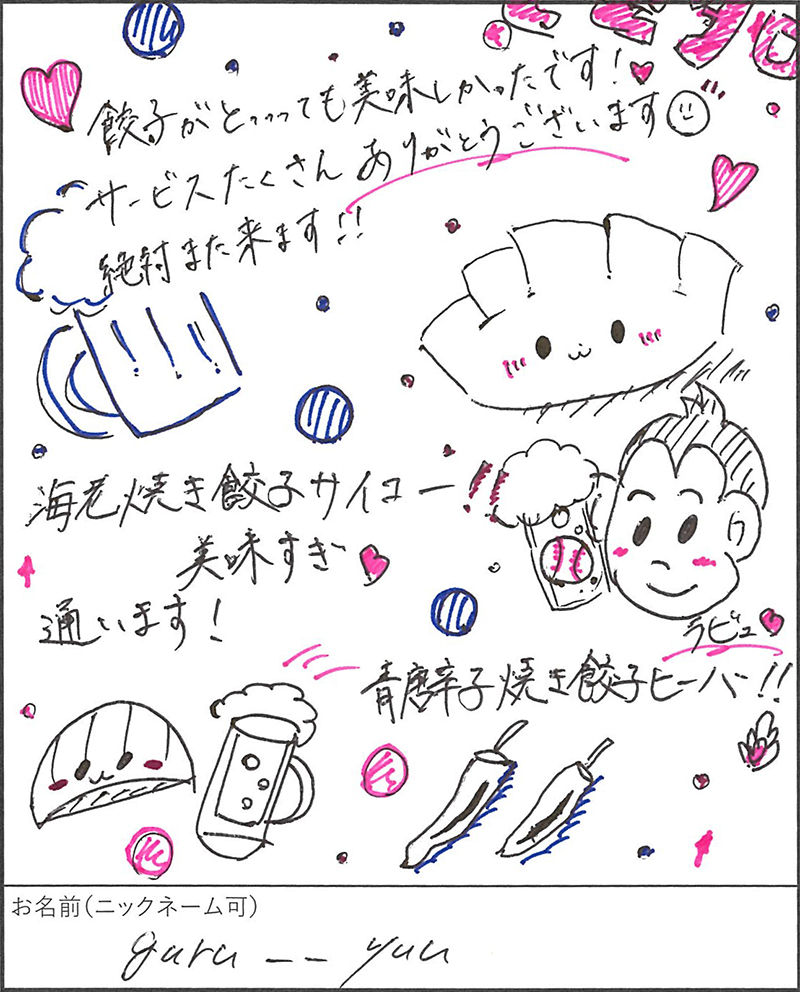 餃子がとっっっても美味しかったです!
サービスたくさんありがとうございます
絶対また来ます!!
海老焼き餃子サイコー!!
美味すぎ
通います!
ラビュ
青唐辛子焼き餃子ヒーハー!!
お名前(ニックネーム可)
guru__yuu